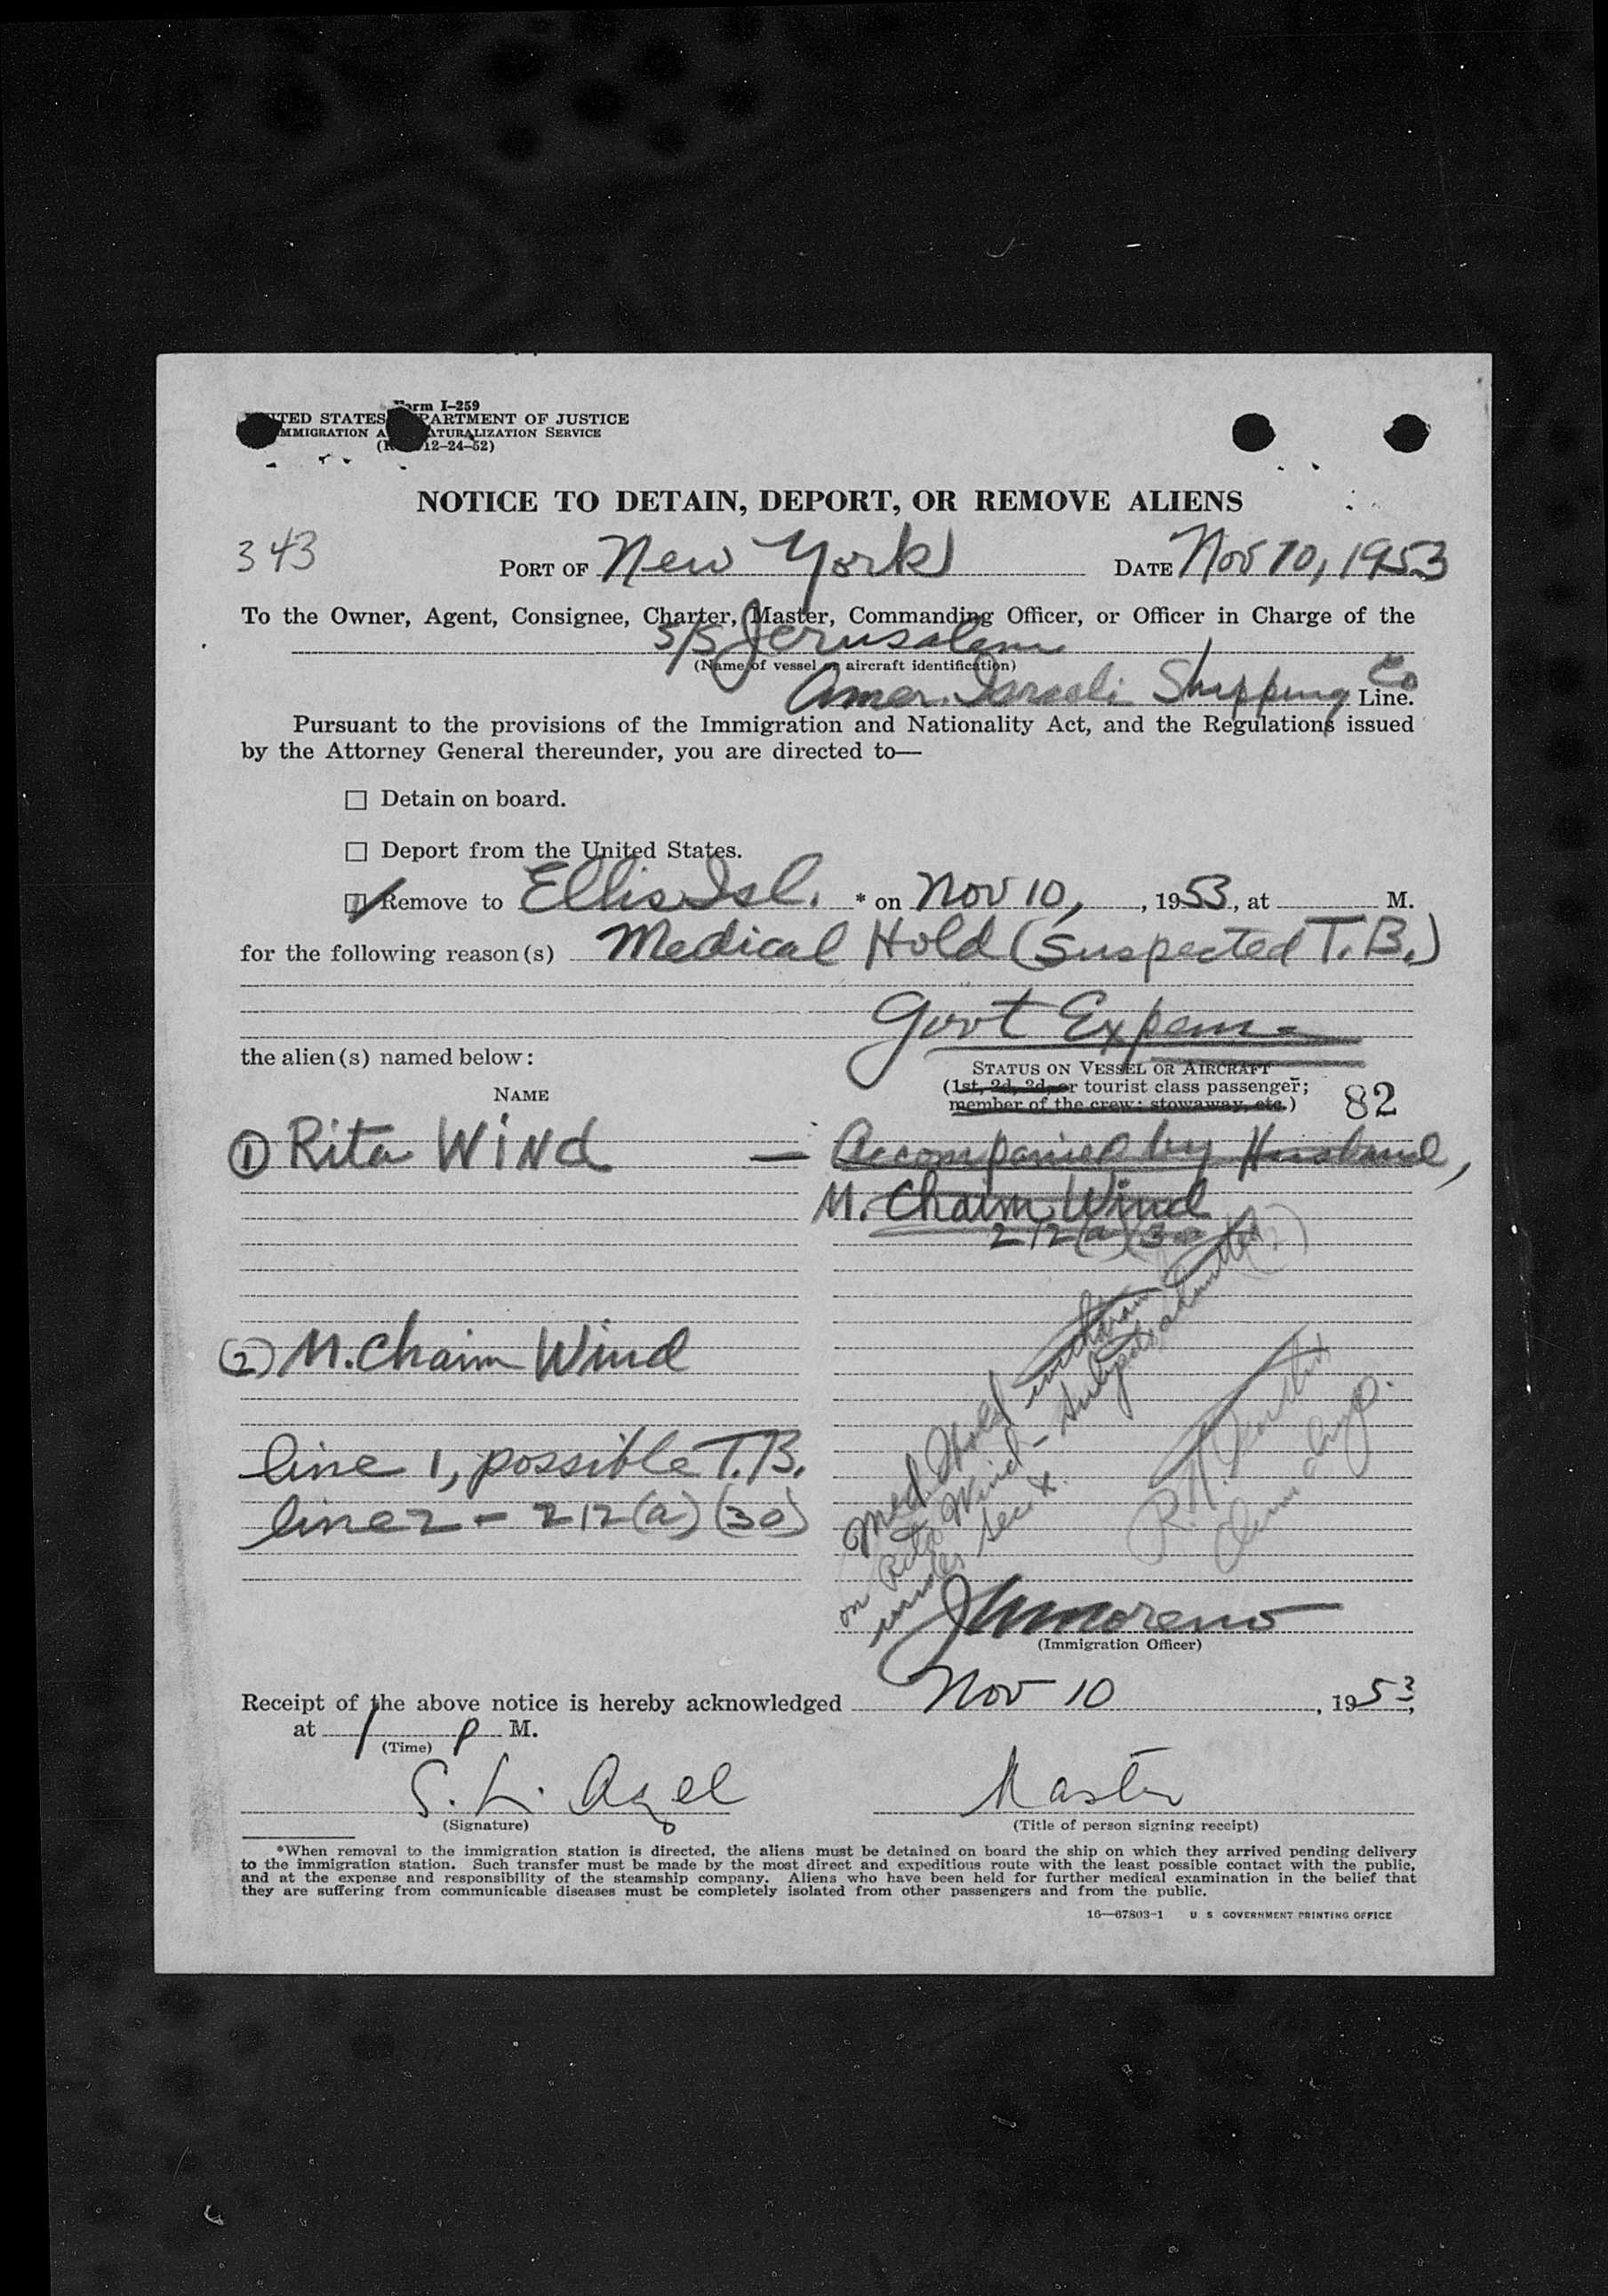 Form I–259
UNITED STATES DEPARTMENT OF JUSTICE
IMMIGRATION AND NATURALIZATION SERVICE
12–24–52)
NOTICE TO DETAIN, DEPORT, OR REMOVE ALIENS
343 PORT OF New York DATE Nov 10, 1953
To the Owner, Agent, Consignee, Charter, Master, Commanding Officer, or Officer in Charge of the
S/S Jerusalem
(Name of vessel or aircraft identification)
Amer. Israeli Shipping Co Line.
Pursuant to the provisions of the Immigration and Nationality Act, and the Regulations issued
by the Attorney General thereunder, you are directed to—
☐ Detain on board.
☐ Deport from the United States.
☑ Remove to Ellis Isl. * on Nov 10, , 1953, at M.
for the following reason(s) Medical Hold (Suspected T.B.)
Govt Expense
the alien(s) named below:
STATUS ON VESSEL OR AIRCRAFT
(1st, 2d, 3d, or tourist class passenger;
member of the crew; stowaway, etc.) 82
NAME
① Rita Wind — Accompanied by Husband,
M. Chaim Wind
212(a)(30
② M. Chaim Wind
line 1, possible T.B.
line 2 - 212(a)(30)
Med Hold withdrawn
on Rita Wind -
under Sec X.
R. H.
JH Moreno
(Immigration Officer)
Receipt of the above notice is hereby acknowledged Nov 10 , 1953,
at 1 P M.
(Time)
S. L. Azel Master
(Signature) (Title of person signing receipt)
*When removal to the immigration station is directed, the aliens must be detained on board the ship on which they arrived pending delivery
to the immigration station. Such transfer must be made by the most direct and expeditious route with the least possible contact with the public,
and at the expense and responsibility of the steamship company. Aliens who have been held for further medical examination in the belief that
they are suffering from communicable diseases must be completely isolated from other passengers and from the public.
16—67803-1 U S GOVERNMENT PRINTING OFFICE